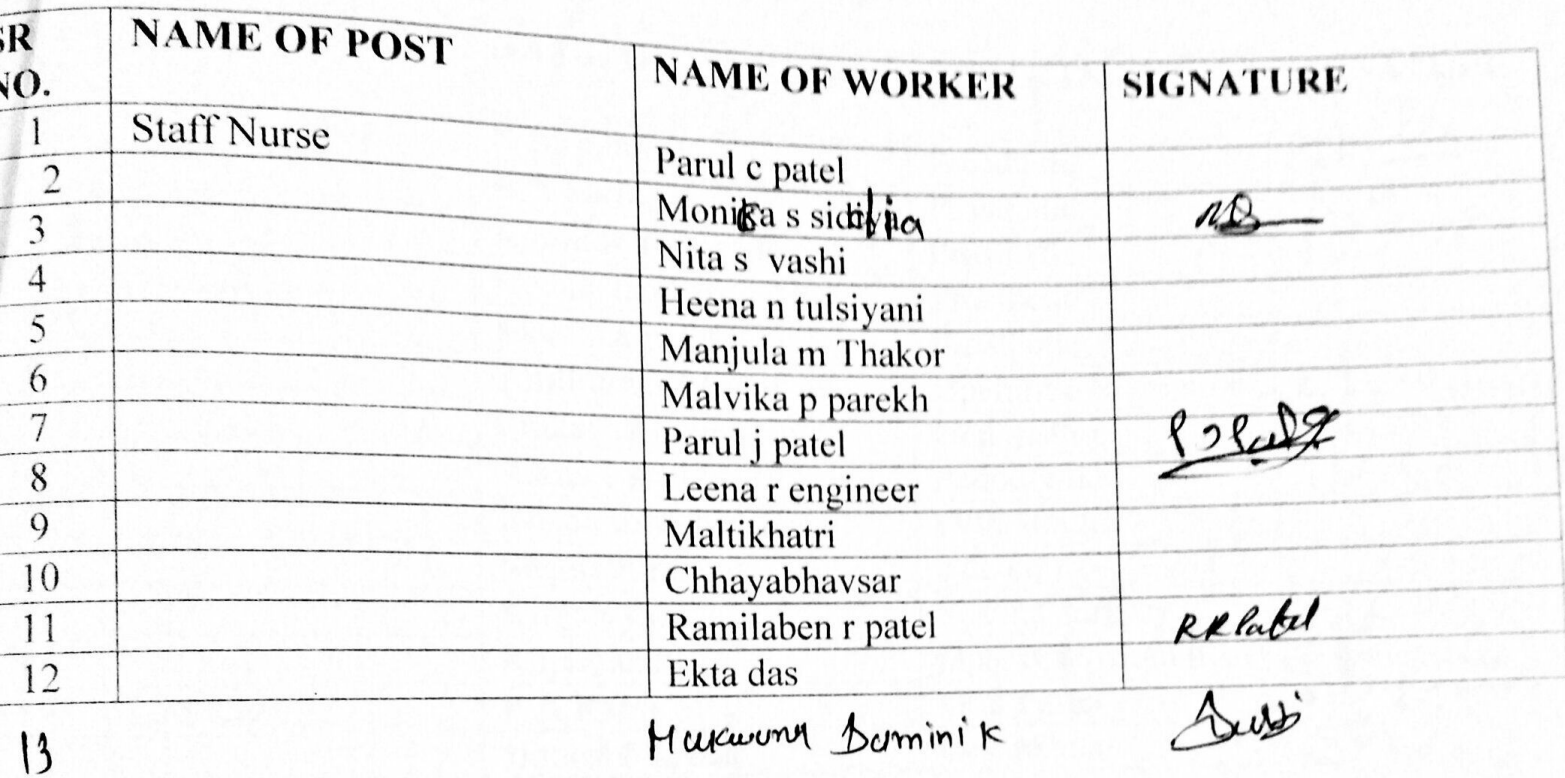 SR NO. NAME OF POST NAME OF WORKER SIGNATURE
1 Staff Nurse Parul c patel
2 Monika s
3 Nita s vashi
4 Heena n tulsiyani
5 Manjula m Thakor
6 Malvika p parekh
7 Parul j patel P J Patel
8 Leena r engineer
9 Maltikhatri
10 Chhayabhavsar
11 Ramilaben r patel RR Patel
12 Ekta das
13 Dominik